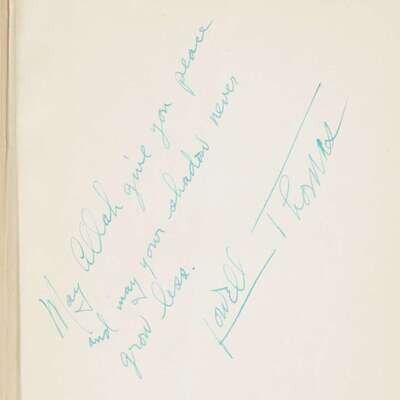 May Allah give you peace
and may your shadow never
grow less.
Lowell Thomas